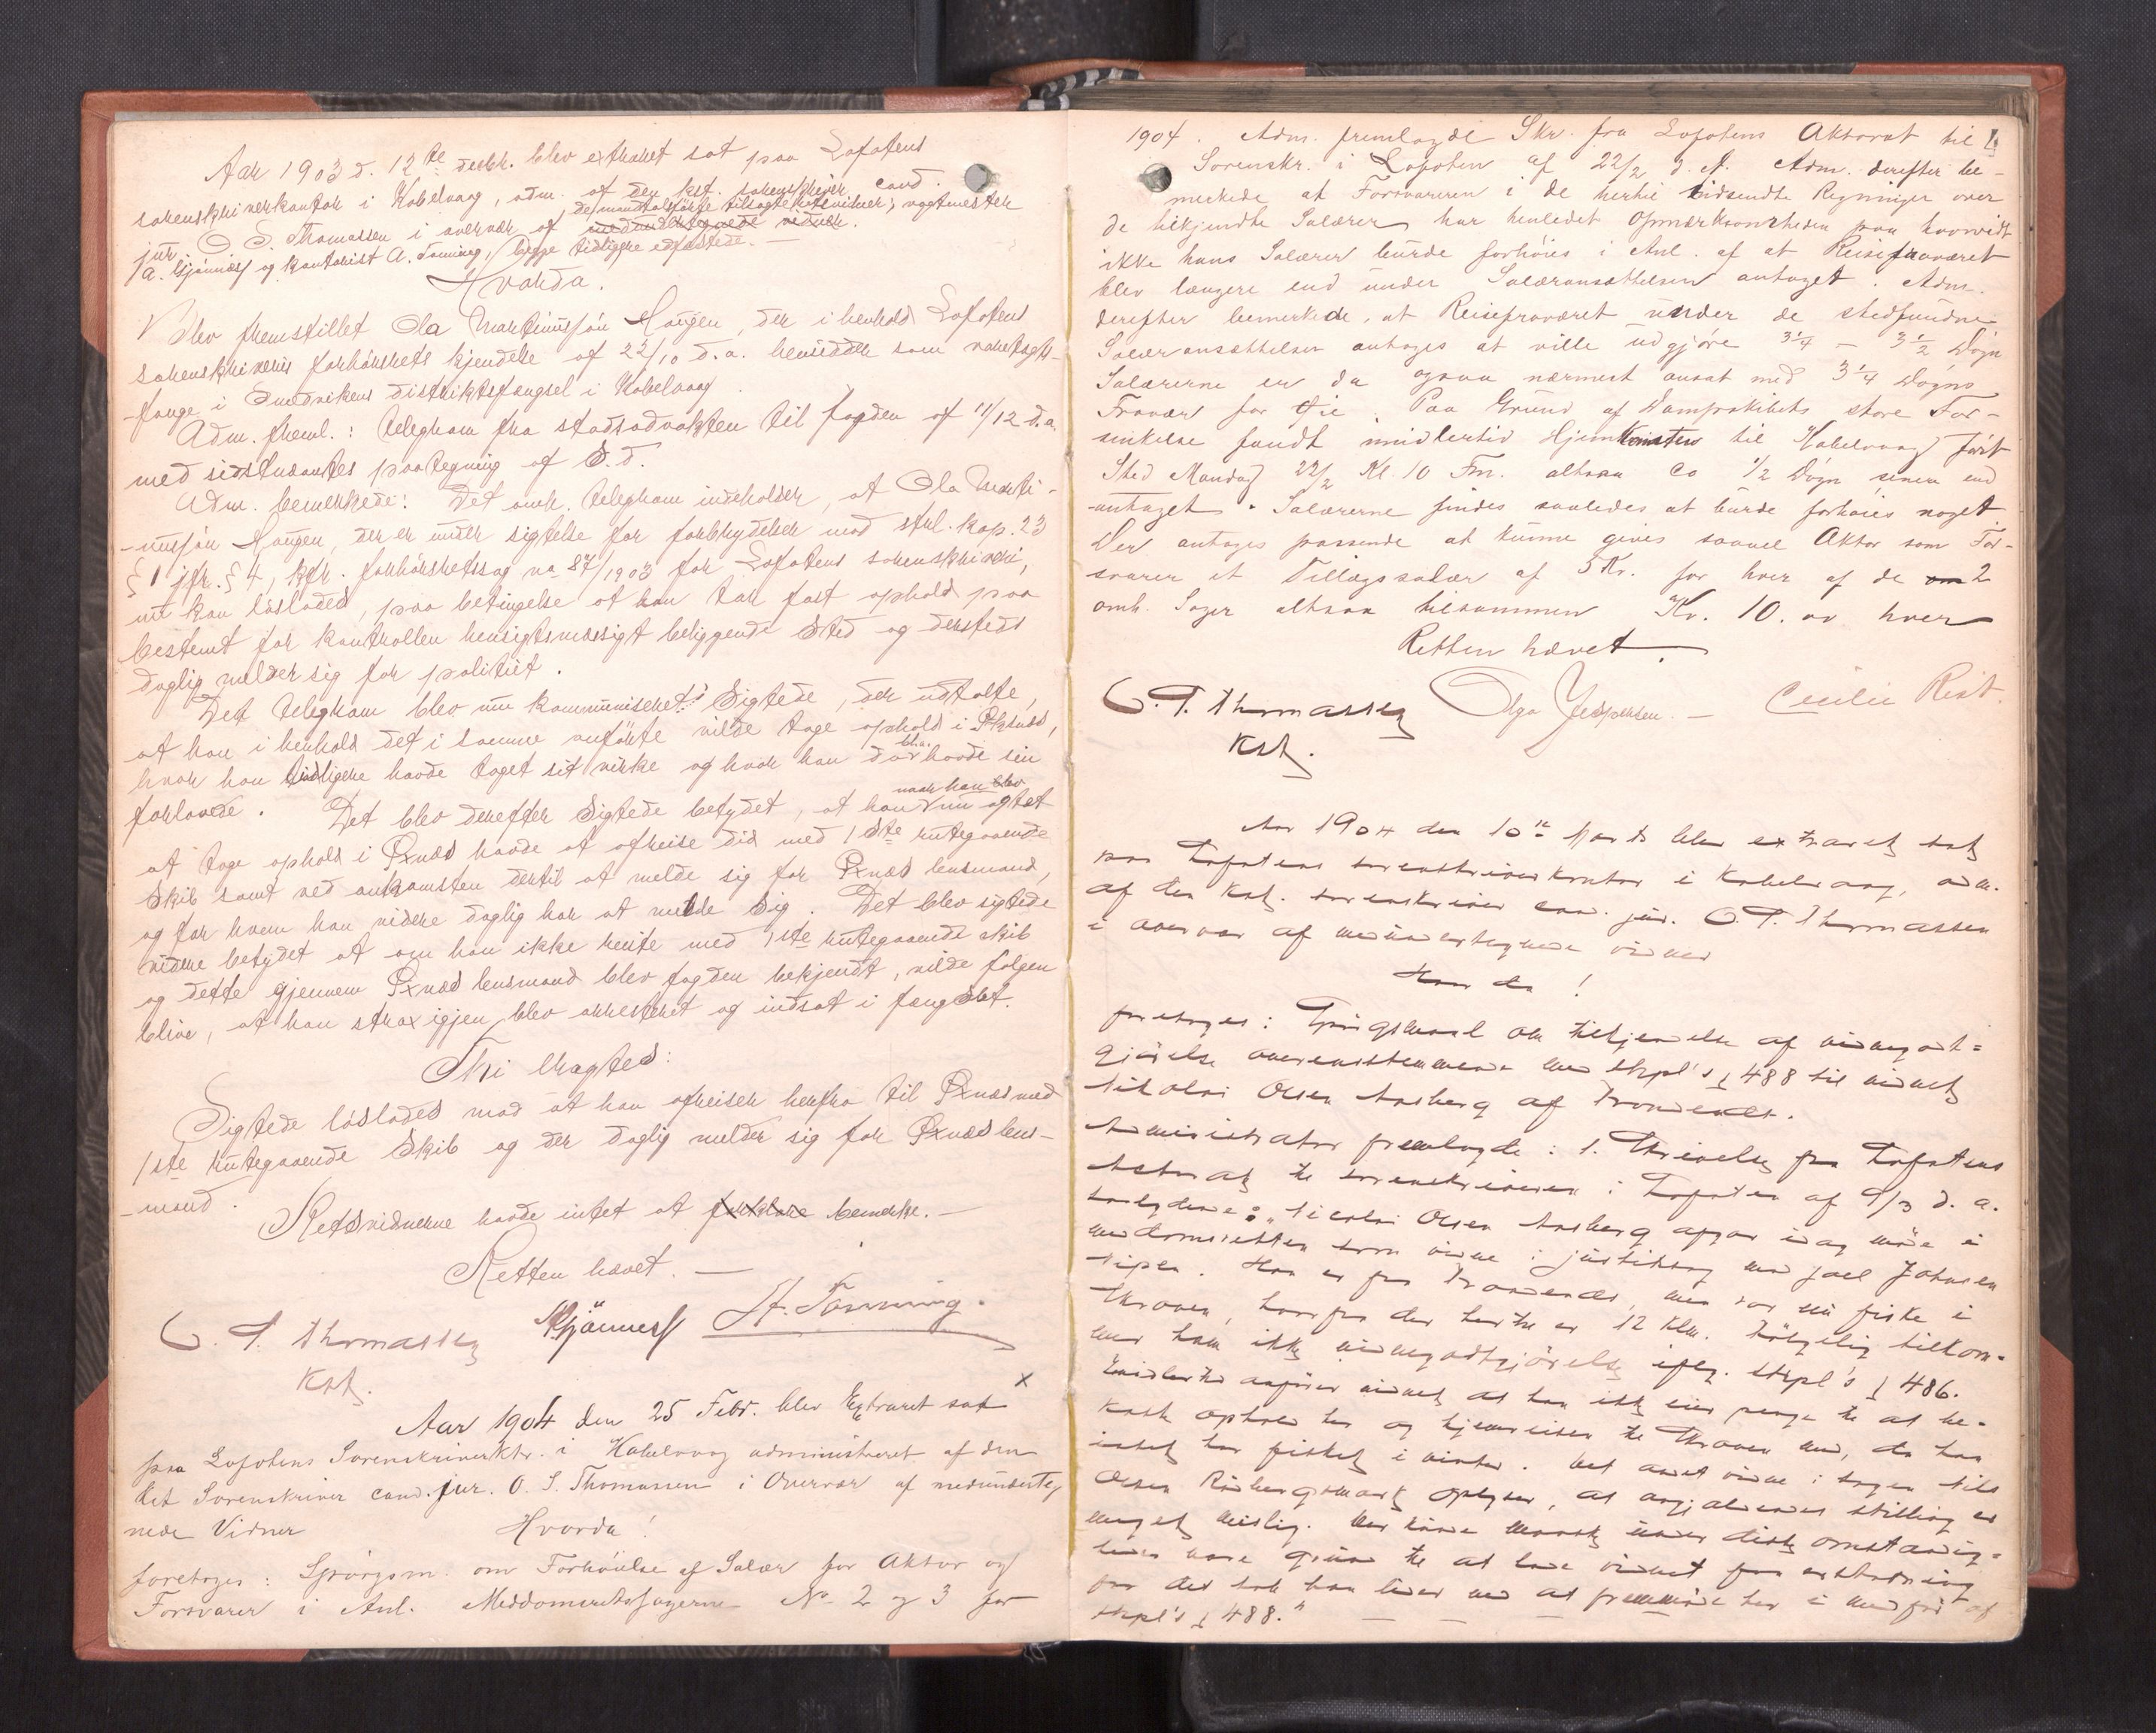 Aar 1903 d. 12te decbr. blev extraret sat paa Lofotens
sorenskriverkontor i Kabelvaag, adm. af den kst. sorenskriver cand.
jur. O. S. Thomassen i overvær af de mundtlig tilsagte retsvidner, vagtmester
A. Gjönnes og kontorist A. Tönning, begge tidligere edfæstede. —
Hvorda.
Blev fremstillet Ola Martinussön Haugen, der i henhold Lofotens
sorenskriveris forhörsrets kjendelse af 22/10 d.a. hensidder som varetægts-
-fange i Smedvikens distriktsfængsel i Kabelvaag.
Adm. freml.: telegram fra statsadvokaten til fogden af 11/12 d.a.
med sidstnævntes paategning af S.D.
Adm. bemerkede: Det omh. telegram indeholder, at Ola Marti-
-nussön Haugen, der er under sigtelse for forbrydelser mod strl. kap. 23
§ 1 jfr. § 4, kfr. forhörsretssag no 87/1903 for Lofotens sorenskriveri,
nu kan löslades, paa betingelse at han tar fast ophold paa
bestemt for kontrollen hensigtsmæssigt beliggende Sted og dersteds
daglig melder sig for politiet.
Det telegram blev nu kommuniceret Sigtede, der udtalte,
at han i henhold det i samme anförte vilde tage ophold i Öksnes,
hvor han tidligere havde taget sit virke og hvor han bl.a. der havde sin
forlovede. Det blev derefter Sigtede betydet, at han naar han nu agtet
at tage ophold i Öxnæs havde at afreise did med 1ste rutegaaende
Skib samt ved ankomsten dertil at melde sig for Öxnæs lensmand,
og for hvem han videre daglig har at melde Sig. Det blev sigtede
videre betydet at om han ikke reiste med 1ste rutegaaende skib
og dette gjennem Öxnæs lensmand blev fogden bekjendt, vilde fölgen
blive, at han strax igjen blev arresteret og indsat i fængslet.
Thi eragtes:
Sigtede löslades mod at han afreiser herfra til Öxnæs med
1ste rutegaaende Skib og der daglig melder sig for Öxnæs lens-
-mand.
Retsvidnerne havde intet at bemerke. —
Retten hævet. —
O. S. Thomassen AGjönnes A. Tönning.
Kst.
x
Aar 1904 den 25 Febr. blev Extraret sat
paa Lofotens Sorenskriverktr. i Kabelvaag administreret af den
kst Sorenskriver cand. jur. O. S. Thomassen i Overvær af medunderteg
nede Vidner Hvorda!
foretoges: Spörgsm. om Forhöielse af Salær for Aktor og
Forsvarer i Anl. Meddomsretssagerne No 2 og 3 for
1904. Adm. fremlagde Skr. fra Lofotens Aktorat til
Sorenskr. i Lofoten af 22/2 d. A. Adm. derefter be-
merkede at Forsvareren i de hertil indsendte Regninger over
de tilkjendte Salærer har henledet Opmærksomheden paa hvorvidt
ikke hans Salærer burde forhöies i Anl. af at Reisefraværet
blev længere end under Salæransættelsen antaget. Adm.
derefter bemerkede, at Reisefraværet under de stedfundne
Salæransættelser antoges at ville udgjöre 3¼ – 3½ Dögn
Salærerne er da ogsaa nærmest ansat med 3¼ Dögns
Fravær for Öie. Paa Grund af Dampskibets store For-
sinkelse fandt imidlertid Hjemkomsten til Kabelvaag först
Sted Mandag 22/2 Kl. 10 Fm. altsaa Ca 1/2 Dögn senere end
antaget. Salærerne findes saaledes at burde forhöies noget
Der antages passende at kunne gives saavel Aktor som For-
svarer et Tillægssalær af 5 Kr. for hver af de 2
omh. Sager altsaa tilsammen Kr. 10. 00 hver
Retten hævet.
O. S. Thomassen Olga Jespersen. — Cecilie Rist.
Kst.
Aar 1904 den 10de Marts blev extraret sat
paa Lofotens sorenskriverkontor i Kabelvaag, adm.
af den kst. sorenskriver cand. jur. O. S. Thomassen
i overvær af medundertegnede vidner
Hvorda!
foretoges: Spörgsmaal om tilkjendelse af vidnegodt=
gjörelse overensstemmende med strpl's § 488 til vidnet
Nikolai Olsen Aasberg af Trondenes.
Administrator fremlagde: 1. Skrivelse fra Lofotens
Aktorat til sorenskriveren i Lofoten af 9/3 d. a.
saalydende: "Nicolai Olsen Aasberg afgav idag möde i
meddomsretten som vidne i justitssag mod Joel Johnsen
Han er fra Trondenes, men var nu fiske i
Skroven, hvorfra der hertil er 12 Klm. Fölgelig tilkom-
mer ham ikke vidnegodtgjörelse iflg. strpl's § 486.
Imidlertid anförer vidnet at han ikke eier penge til at be-
koste ophold her og hjemreisen til Skroven med, da han
intet har fisket i vinter. Det andet vidne i sagen Nils
Olsen oplyser, at angjældendes stilling er
meget mislig. Der kunde maaske under disse omstændig=
heder være grund til at lade vidnet faa erstatning
for det tab han lider ved at fremmöde her i medför af
strpl's § 488." — — — —